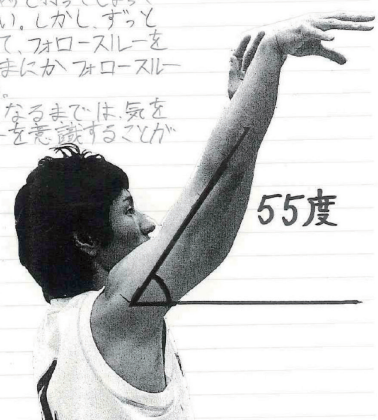 い。しかし、ずっと
て、フォロースルーを
まにか フォロースルー
なるまでは、気を
ーを意識することが
55度